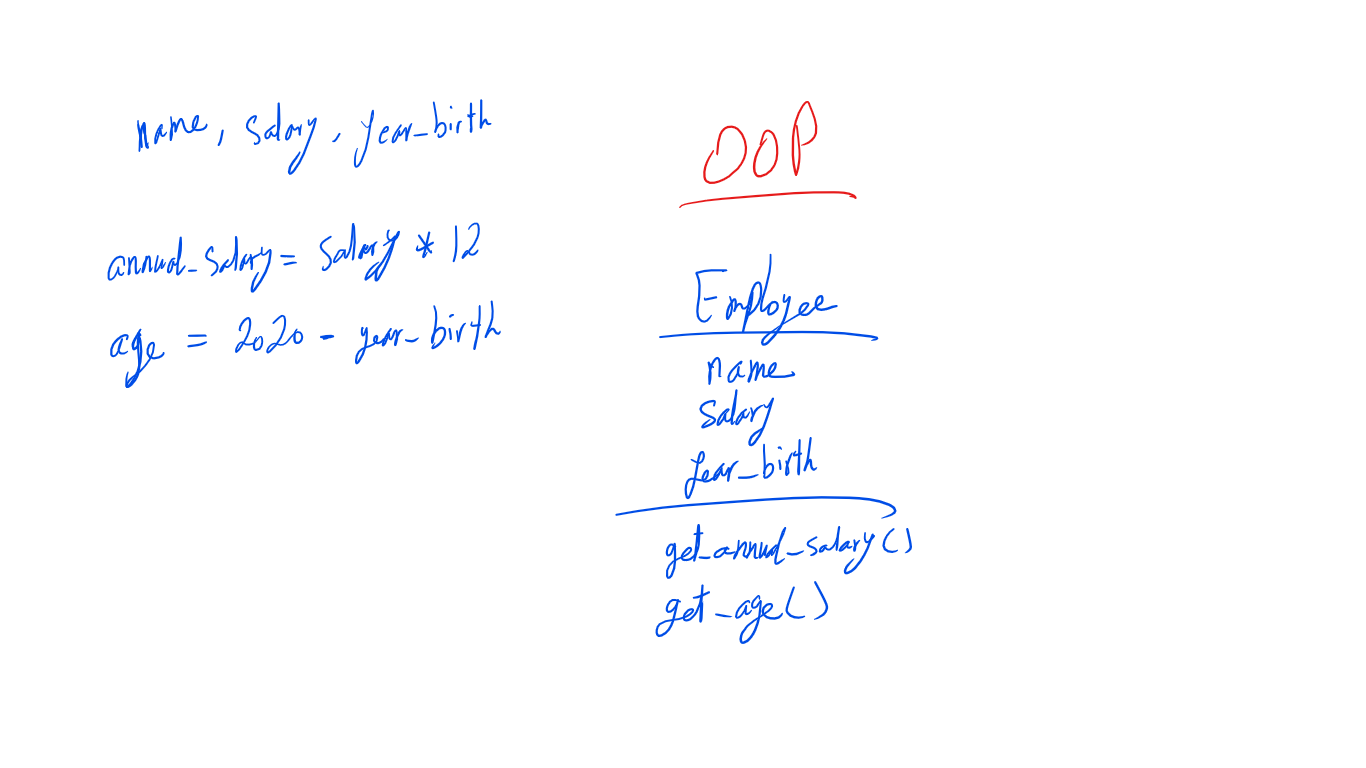 name, salary, year_birth
annual_salary = salary * 12
age = 2020 - year_birth
OOP
Employee
name
salary
year_birth
get_annual_salary()
get_age()